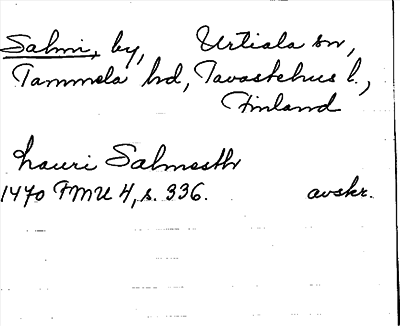 Salmi, by, Urtiala sn,
Tammela hd, Tavastehus l.,
Finland
Lauri Salmesth
1470 FMU 4, s. 336. avskr.